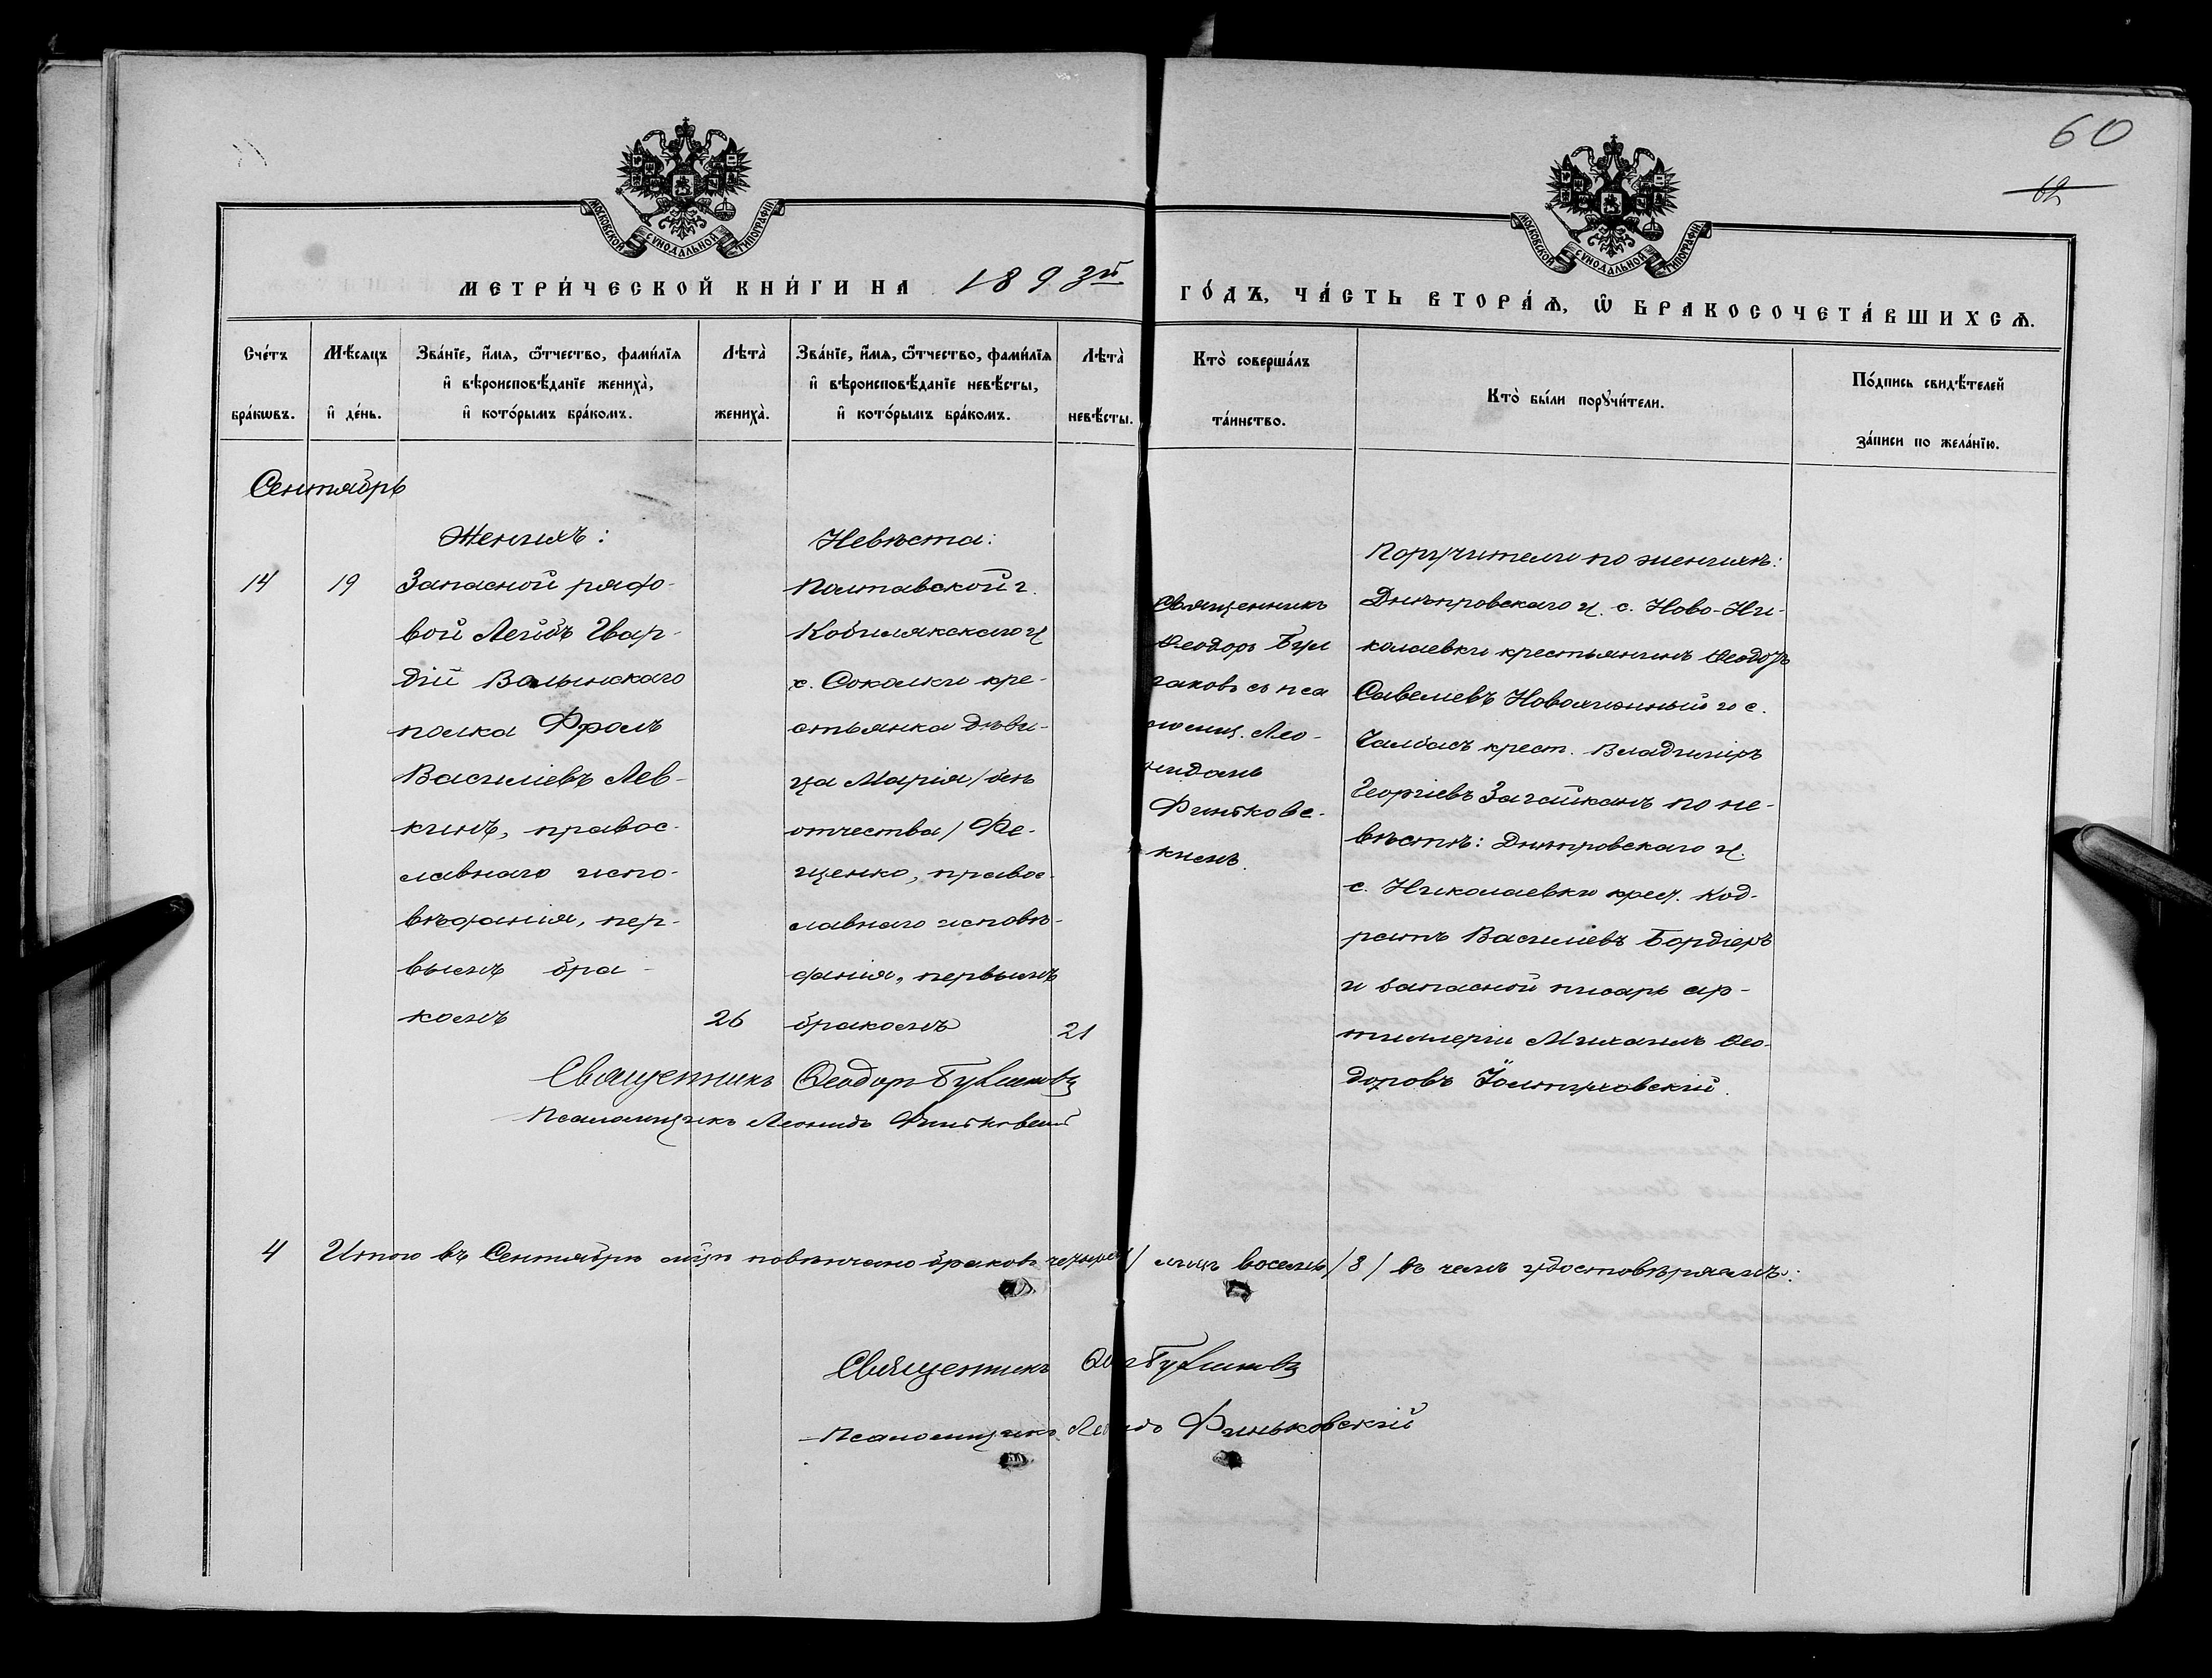 60
62
МОСКОВСКОЙ СѴНОДАЛЬНОЙ ТИПОГРАФІИ
МОСКОВСКОЙ СѴНОДАЛЬНОЙ ТИПОГРАФІИ
МЕТРИ́ЧЕСКОЙ КНИ́ГИ НА 1893й ГО́ДЪ, ЧА́СТЬ ВТОРА́Ѧ, Ѽ БРАКОСОЧЕТА́ВШИХСѦ.
Сче́тъ
бра́кωвъ.
Мѣ́сѧцъ
и҆ де́нь.
Зва́нїе, и҆́мѧ, ѻ҆́тчество, фами́лїѧ
и҆ вѣроисповѣ́данїе жениха̀,
и҆ кото́рымъ бра́комъ.
Лѣта̀
жениха̀.
Зва́нїе, и҆́мѧ, ѻ҆́тчество, фами́лїѧ
и҆ вѣроисповѣ́данїе невѣ́сты,
и҆ кото́рымъ бра́комъ.
Лѣта̀
невѣ́сты.
Кто̀ соверша́лъ
та́инство.
Кто̀ бы́ли порꙋчи́тели.
По́дпись свидѣ́телей
за́писи по жела́нїю.
Сентябрь
14
19
Женихъ:
Запасной рядо-
вой Лейбъ Гвар-
діи Волынскаго
полка Фролъ
Василіевъ Лев-
кинъ, правос-
лавнаго испо-
вѣданія, пер-
вымъ бра-
комъ
26
Невѣста:
Полтавской г.
Кобилякскаго у
с. Соколки кре-
стьянка дѣви-
ца Марія /безъ
отчества/ Фе-
щенко, правос-
лавнаго исповѣ-
данія, первымъ
бракомъ
21
Священникъ
Ѳеодоръ Бул
гаковъ съ пса
ломщ. Лео-
нидомъ
Финьковс-
кимъ.
Поручители по женихѣ:
Днѣпровскаго у. с. Ново-Ни-
колаевки крестьянинъ Ѳеодоръ
Савелиевъ и с.
Чалбасъ крест. Владиміръ
Георгіевъ по не-
вѣстѣ: Днѣпровскаго у.
с. Николаевки крест. Код-
ратъ Василіевъ
и запасной писарь ар-
тиллеріи Михаилъ Ѳео-
доровъ
Священникъ Ѳеодоръ Булгаковъ
Псаломщикъ Леонидъ Финьковский
4 Итого въ Сентябрѣ мцѣ повѣнчано браковъ четыре / лицъ восемь /8/ въ чемъ удостовѣряемъ:
Священникъ Ѳео Булгаковъ
Псаломщикъ Леонидъ Финьковскій